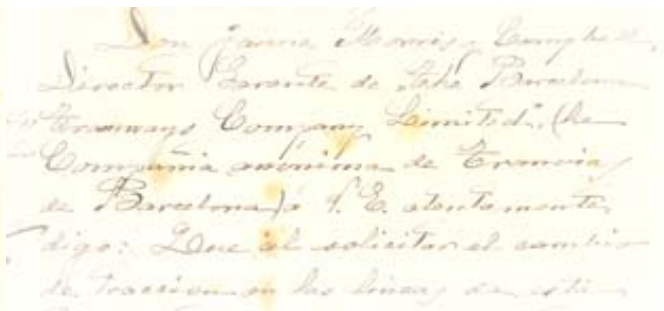 Don Jaime Morris y Campbell,
Director Gerente de "The Barcelona
Tramways Company Limited", (La
Compañia anónima de Tranvias
de Barcelona) á V. E. atentamente
digo: Que al solicitar el cambio
de traccion en las lineas de esta